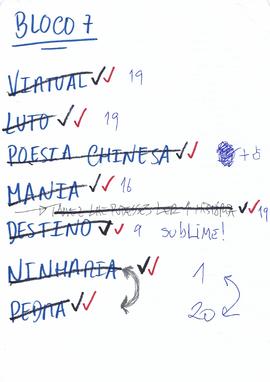 BLOCO 7
VIATUAL 19
LUTO 19
POESIA CHINESA +5
MANIA 16
19
DESTINO 9 SUBLIME!
NINHARIA 1
PEDRA 20